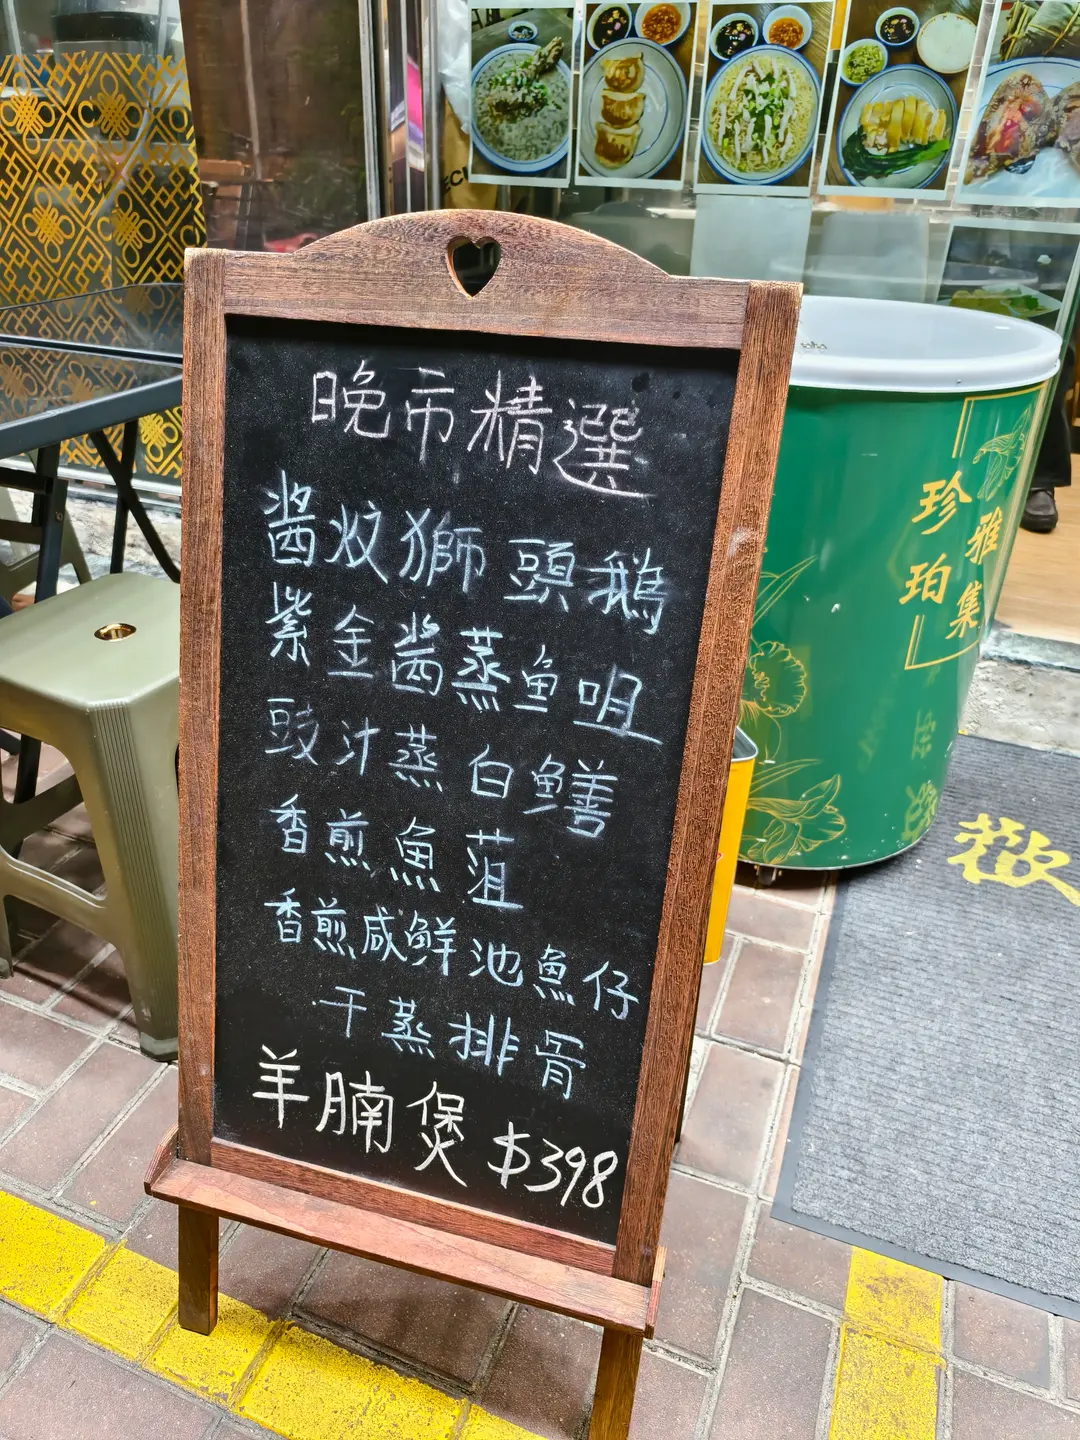 晚市精選
酱炆獅頭鵝
紫金酱蒸魚咀
豉汁蒸白鱔
香煎魚菹
香煎咸鮮池魚仔
干蒸排骨
羊腩煲 $398
珍珀
雅集
歡